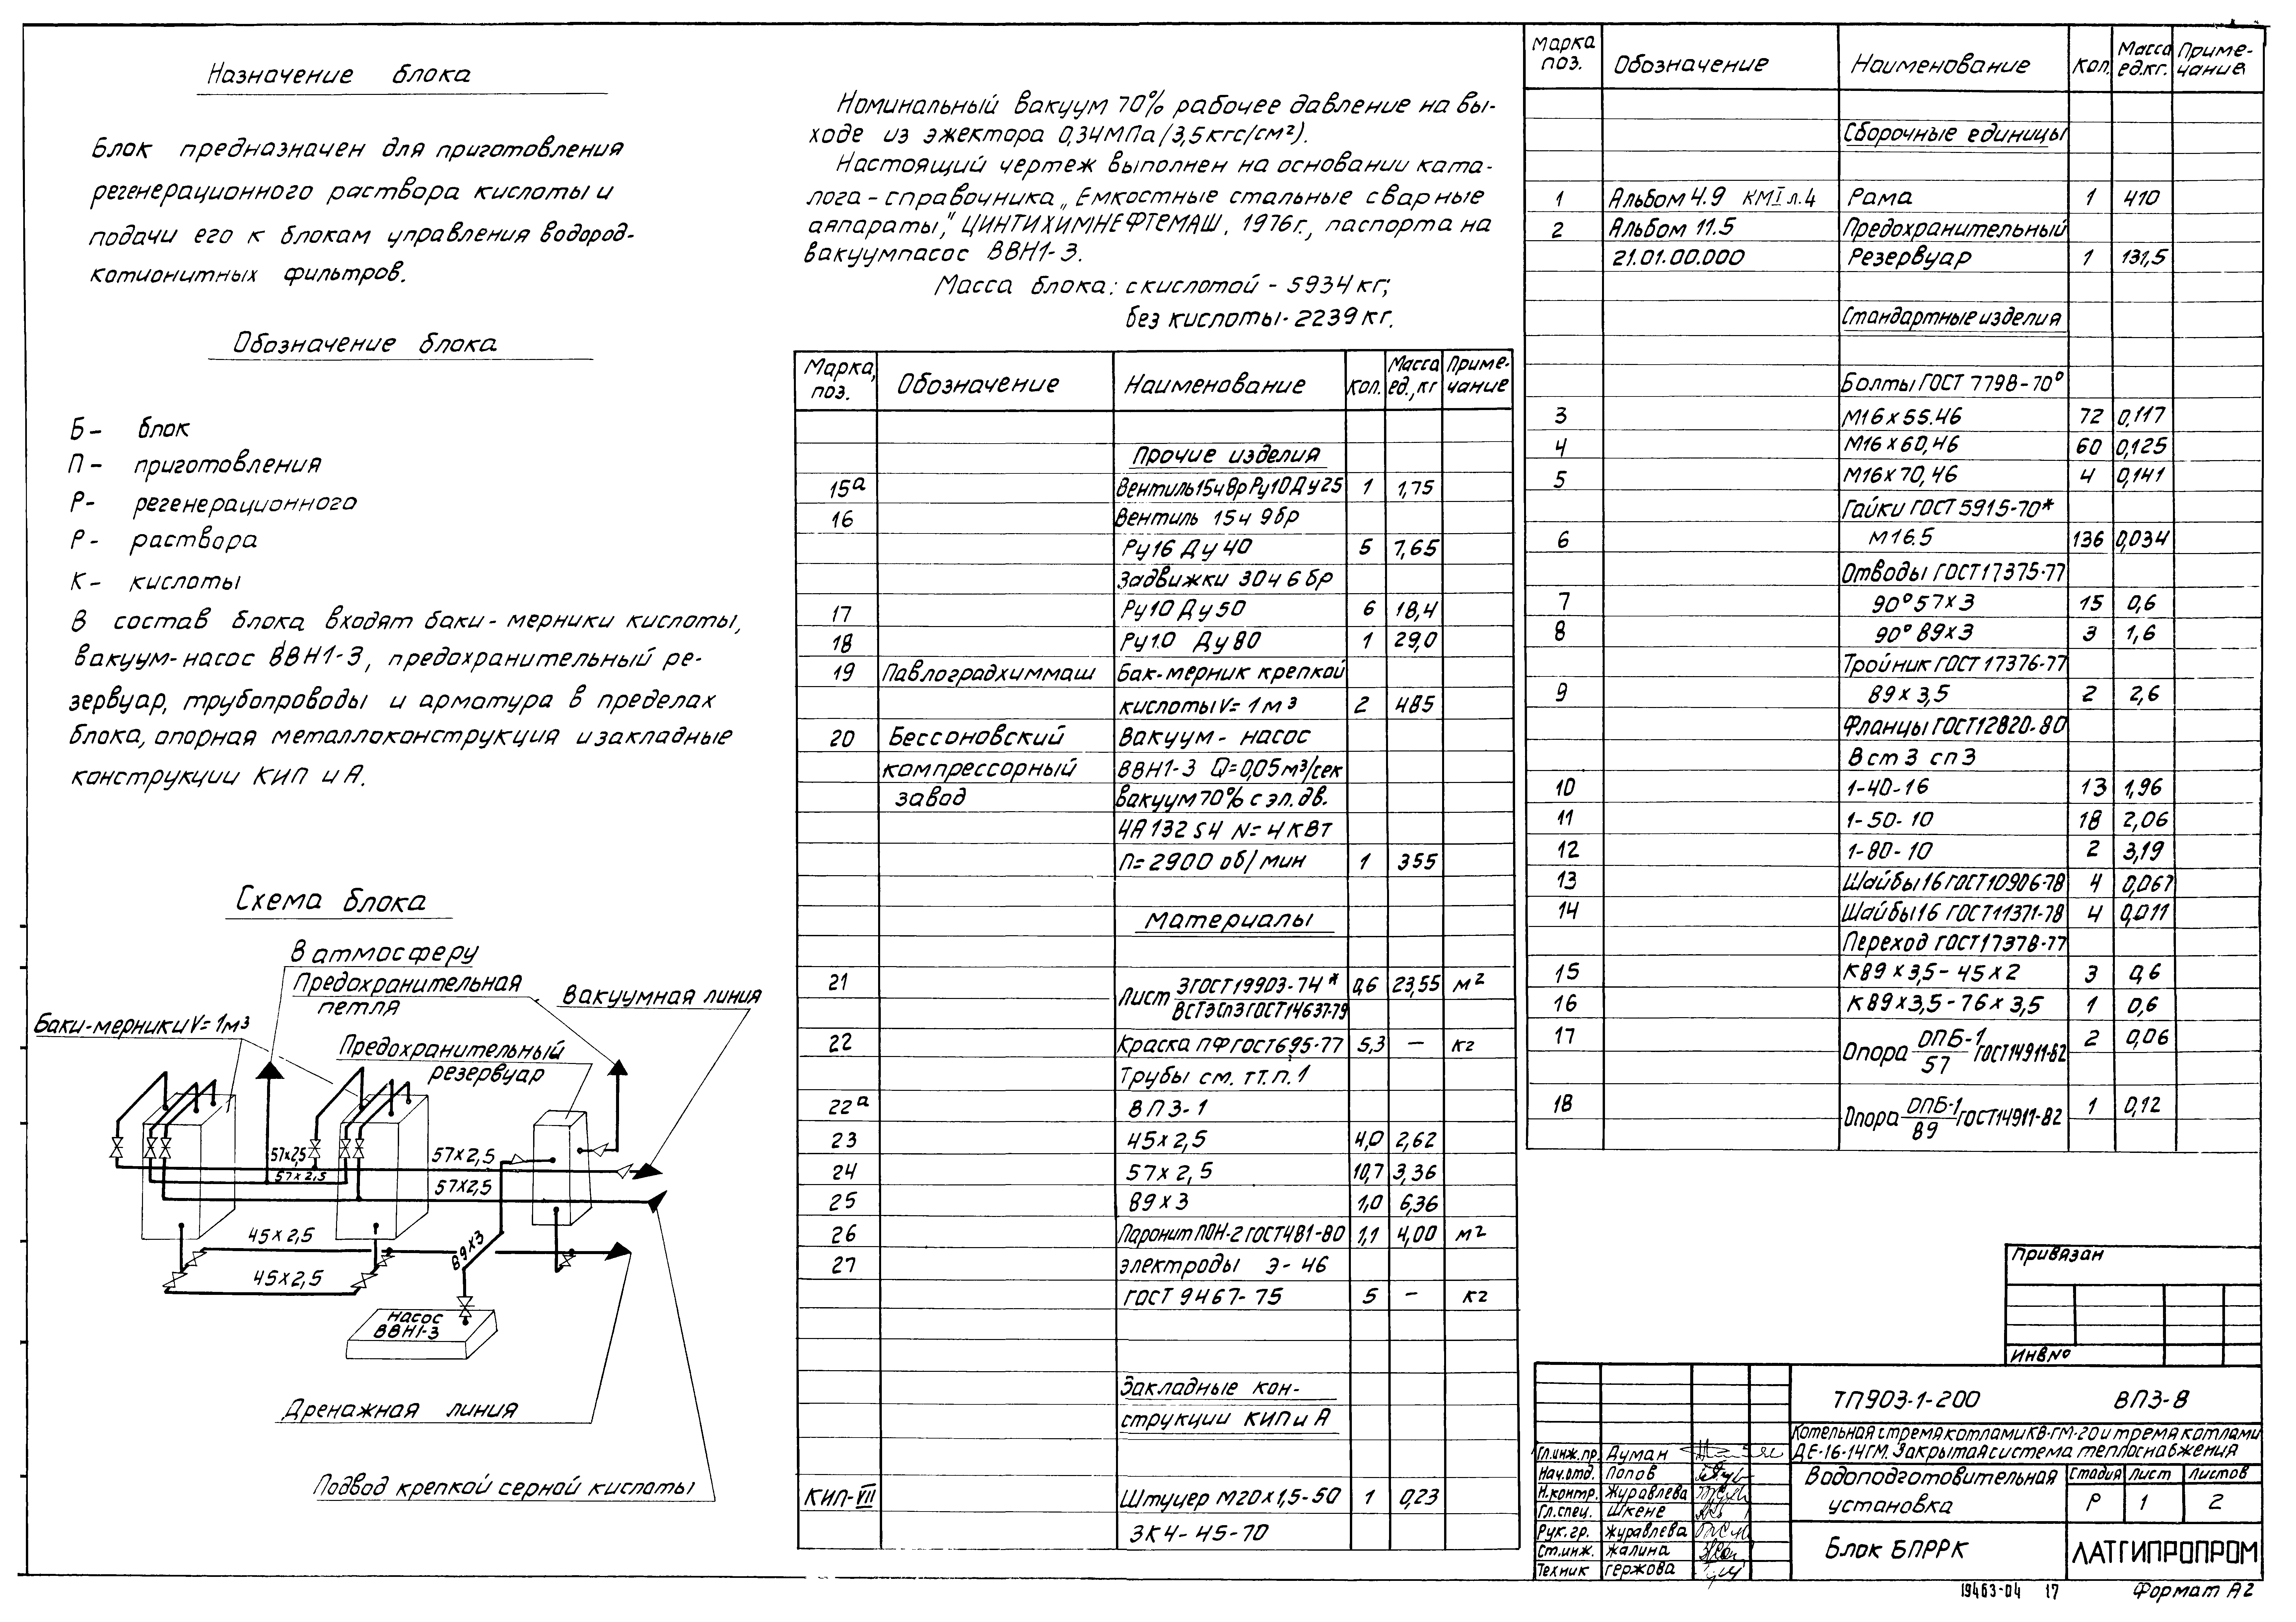 Назначение блока
Блок предназначен для приготовления
регенерационного раствора кислоты и
подачи его к блокам управления водород-
катионитных фильтров.
Обозначение блока
Б- блок
П- приготовления
Р- регенерационного
Р- раствора
К- кислоты
В состав блока входят баки-мерники кислоты,
вакуум-насос ВВН1-3, предохранительный ре-
зервуар, трубопроводы и арматура в пределах
блока, опорная металлоконструкция и закладные
конструкции КИП и А.
Схема блока
В атмосферу
Предохранительная
петля
Вакуумная линия
Баки-мерники V=1м³
Предохранительный
резервуар
57х2,5
57х2,5
57х2,5
57х2,5
45х2,5
45х2,5
89х3
Насос
ВВН1-3
Дренажная линия
Подвод крепкой серной кислоты
Номинальный вакуум 70% рабочее давление на вы-
ходе из эжектора 0,34МПа/3,5кгс/см²).
Настоящий чертеж выполнен на основании ката-
лога-справочника „Емкостные стальные сварные
аппараты", ЦИНТИХИМНЕФТЕМАШ, 1976г., паспорта на
вакуумпасос ВВН1-3.
Масса блока: с кислотой - 5934кг;
без кислоты-2239кг.
Марка, поз. Обозначение Наименование Кол. Масса ед.,кг Приме-чание
Прочие изделия
15а Вентиль15ч8рРу10Ду25 1 1,75
16 Вентиль 15ч 9бр
Ру16 Ду40 5 7,65
Задвижки 30ч6бр
17 Ру10 Ду50 6 18,4
18 Ру10 Ду80 1 29,0
19 Павлоградхиммаш Бак-мерник крепкой
кислоты V=1м³ 2 485
20 Бессоновский Вакуум-насос
компрессорный ВВН1-3 Q=0,05м³/сек
завод Вакуум70% с эл.дв.
4А132S4 N=4КВТ
П=2900 об/мин 1 355
Материалы
21 Лист 3ГОСТ19903-74* 0,6 23,55 м²
ВСТ3Сп3ГОСТ14637-79
22 Краска ПФГОСТ695-77 5,3 — кг
Трубы см. тт.п.1
22а ВПЗ-1
23 45х2,5 4,0 2,62
24 57х2,5 10,7 3,36
25 89х3 1,0 6,36
26 Паронит ПОН-2 ГОСТ481-80 1,1 4,00 м²
27 электроды Э-46
ГОСТ 9467-75 5 — кг
Закладные кон-
струкции КИП и А
КИП-VII Штуцер М20х1,5-50 1 0,23
3К4-45-70
Марка поз. Обозначение Наименование Кол. Масса ед.кг. Приме-чание
Сборочные единицы
1 Альбом 4.9 КМI л.4 Рама 1 410
2 Альбом 11.5 Предохранительный
21.01.00.000 Резервуар 1 131,5
Стандартные изделия
Болты ГОСТ 7798-70°
3 М16х55.46 72 0,117
4 М16х60,46 60 0,125
5 М16х70,46 4 0,141
Гайки ГОСТ 5915-70*
6 М16.5 136 0,034
Отводы ГОСТ17375-77
7 90°57х3 15 0,6
8 90°89х3 3 1,6
Тройник ГОСТ 17376-77
9 89х3,5 2 2,6
Фланцы ГОСТ12820-80
Вст3 сп3
10 1-40-16 13 1,96
11 1-50-10 18 2,06
12 1-80-10 2 3,19
13 Шайбы16ГОСТ10906-78 4 0,067
14 Шайбы16 ГОСТ11371-78 4 0,011
Переход ГОСТ17378-77
15 К89х3,5-45х2 3 0,6
16 К89х3,5-76х3,5 1 0,6
17 Опора ОПБ-1/57 ГОСТ14911-82 2 0,06
18 Опора ОПБ-1/89 ГОСТ14911-82 1 0,12
Привязан
ИНВ№
ТП903-1-200 ВПЗ-8
Котельная с тремя котлами КВ-ГМ-20 и тремя котлами
ДЕ-16-14ГМ. Закрытая система теплоснабжения
Гл.инж.пр. Думан
Нач.отд. Попов
Н.контр. Журавлева
Гл.спец. Шкене
Рук.гр. Журавлева
Ст.инж. Жалина
Техник гержова
Водоподготовительная
установка
Стадия Лист Листов
Р 1 2
Блок БПРРК
ЛАТГИПРОПРОМ
19463-04 17 Формат А2